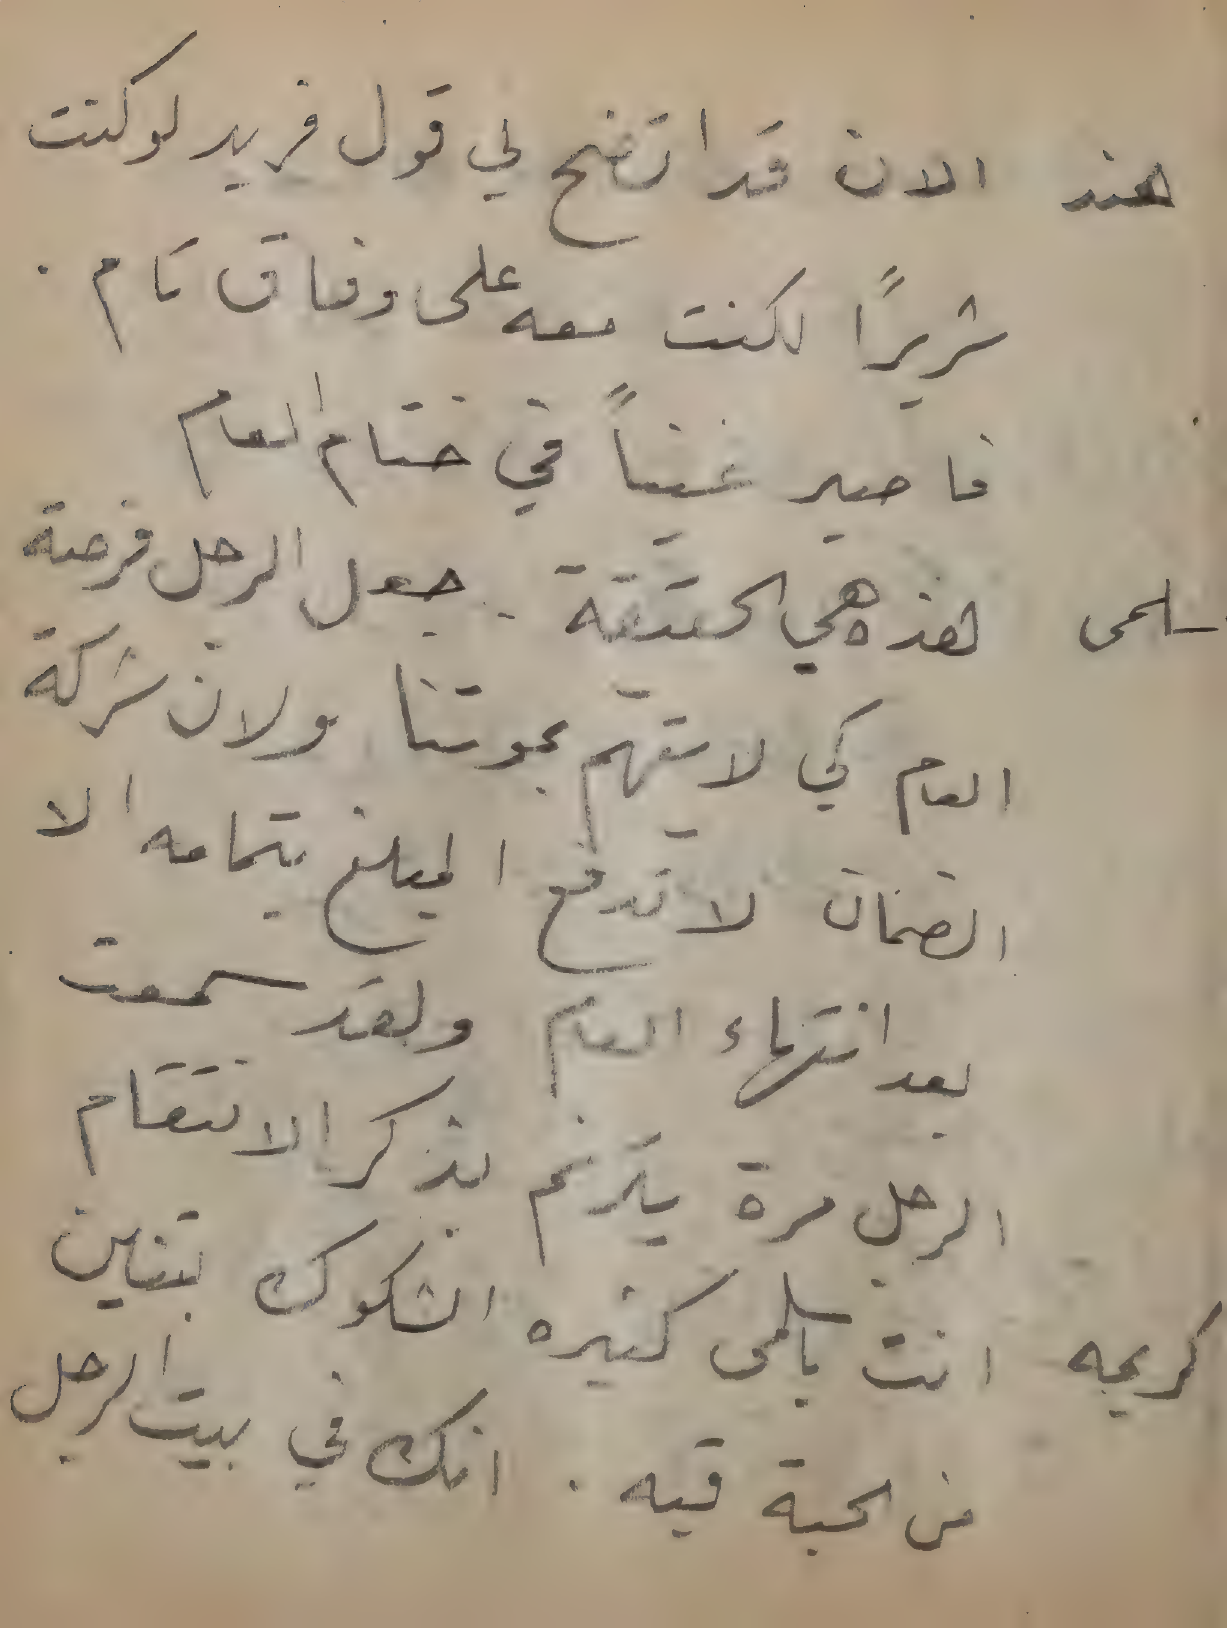 هند الان قد اتضح لي قول فريد لو كنت
شريرًا لكنت معه على وفاق تام .
فاصير غنياً في ختام العام
سلمى هذه هي الحقيقة . جعل الرجل فرصة
العام كي لا يتهم بموتنا ولان شركة
الضمان لا تدفع المبلغ بتمامه الا
بعد انتهاء العام ولقد سمعت
الرجل مرة يترنم بذكر الانتقام
كريمه انت يا سلمى كثيره الشكوك تبنين
من الحبة قبه . انك في بيت الرجل